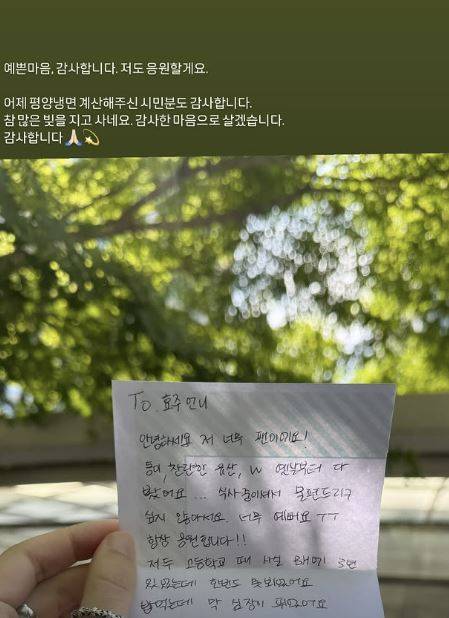 예쁜마음, 감사합니다. 저도 응원할게요.
어제 평양냉면 계산해주신 시민분도 감사합니다.
참 많은 빚을 지고 사네요. 감사한 마음으로 살겠습니다.
감사합니다🙏🏻💫
To. 효주 언니
안녕하세요 저 너무 팬이에요!
동이, 찬란한 유산, W 옛날부터 다
봤어요... 식사 중이셔서 불편드리구
싶지 않아서요. 너무 예뻐요 ㅜㅜ
항상 응원합니다!!
저두 고등학교 때 사실 3번
있었는데 한번도 못봐었어요
밥먹는데 막 심장이 뛰었어요